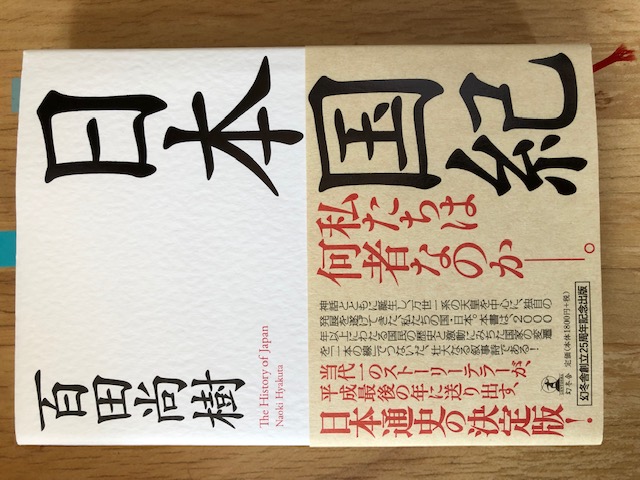 日本国紀
The History of Japan
Naoki Hyakuta
百田尚樹
私たちは
何者なのか――。
神話とともに誕生し、万世一系の天皇を中心に、独自の
発展を遂げてきた、私たちの国・日本。本書は、2000
年以上にわたる国民の歴史と激動にみちた国家の変遷
を「一本の線」でつないだ、壮大なる叙事詩である！
当代一のストーリーテラーが、
平成最後の年に送り出す、
日本通史の決定版！
幻冬舎創立25周年記念出版
定価(本体1800円+税)
幻冬舎